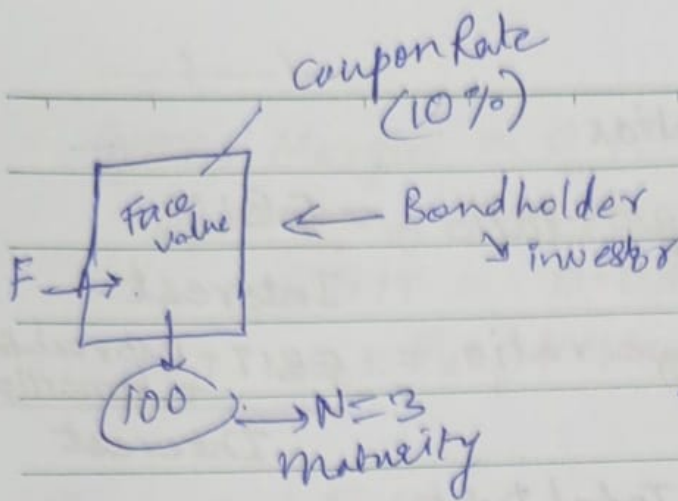 Coupon Rate
(10%)
Face
value
← Bondholder
↘ investor
F →
100 → N = 3
maturity